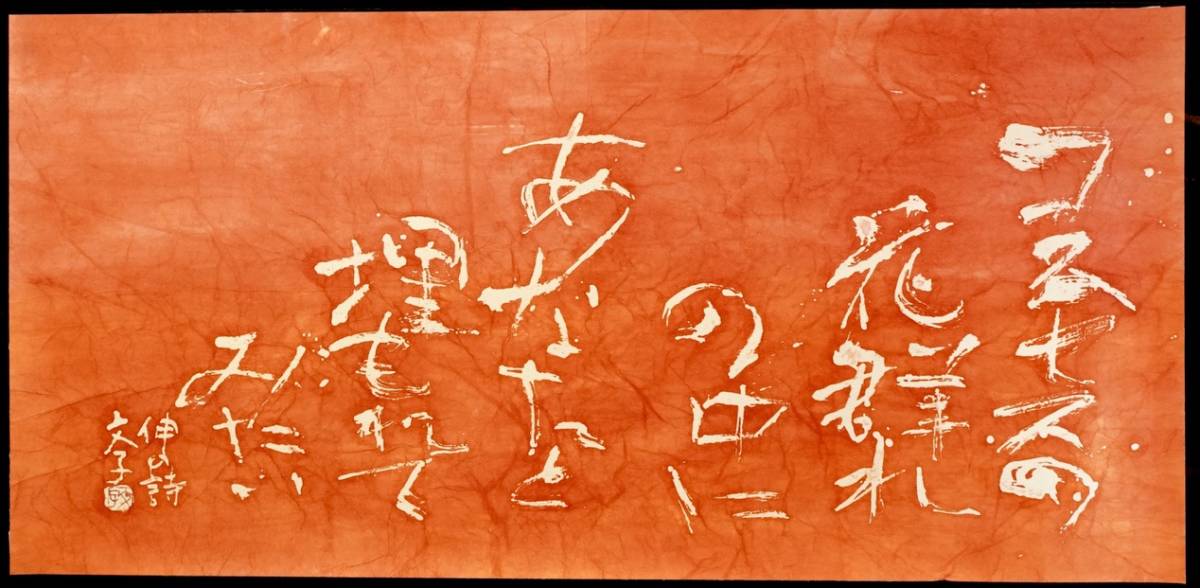 コスモスの
花群れ
の中に
あなたと
埋もれて
みたい
伸の詩
文子